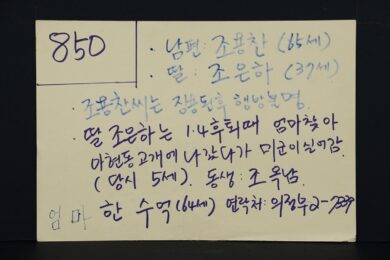 850
· 남편 : 조용찬 (65세)
· 딸 : 조은하 (37세)
· 조용찬씨는 징용된후 행방불명.
· 딸 조은하는 1.4후퇴때 엄마찾아
아현동고개에 나갔다가 미군이실어감
(당시 5세). 동생 : 조옥남.
엄마 한수억 (64세) 연락처 : 의정부2-7239